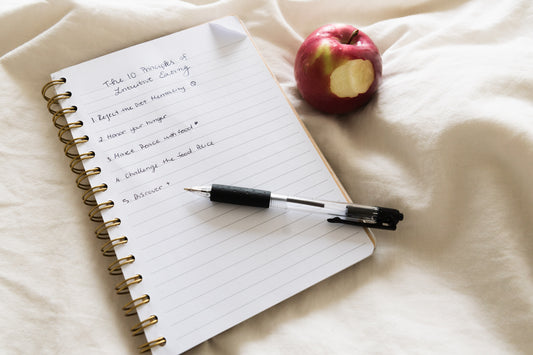 The 10 Principles of
Intuitive Eating
1. Reject the Diet Mentality
2. Honor your hunger
3. Make Peace with food
4. Challenge the food Police
5. Discover